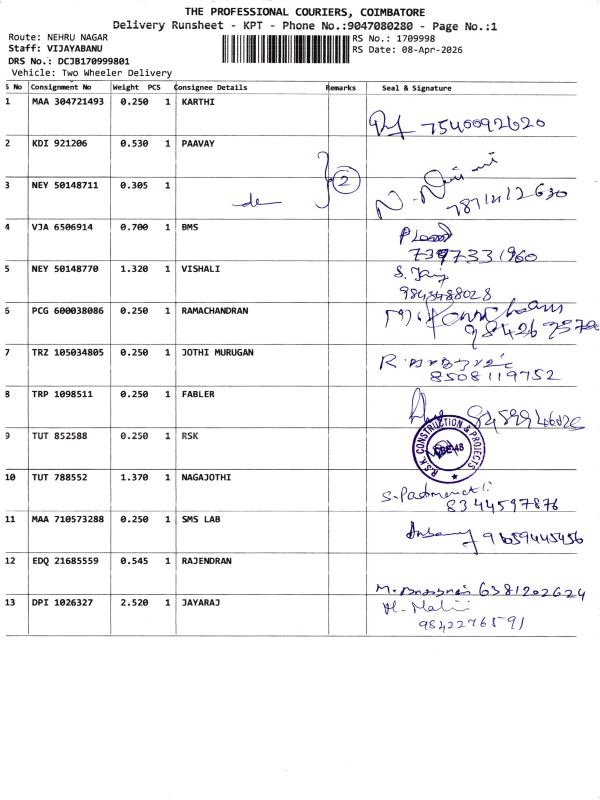 THE PROFESSIONAL COURIERS, COIMBATORE
Delivery Runsheet - KPT - Phone No.:9047080280 - Page No.:1
Route: NEHRU NAGAR
RS No.: 1709998
Staff: VIJAYABANU
RS Date: 08-Apr-2026
DRS No.: DCJB170999801
Vehicle: Two Wheeler Delivery
S No Consignment No Weight PCS Consignee Details Remarks Seal & Signature
1 MAA 304721493 0.250 1 KARTHI
7540092620
2 KDI 921206 0.530 1 PAAVAY
2
3 NEY 50148711 0.305 1
4 VJA 6506914 0.700 1 BMS
7397331960
5 NEY 50148770 1.320 1 VISHALI
9843488028
6 PCG 600038086 0.250 1 RAMACHANDRAN
7 TRZ 105034805 0.250 1 JOTHI MURUGAN
8508119752
8 TRP 1098511 0.250 1 FABLER
9 TUT 852588 0.250 1 RSK
R.S.K. CONSTRUCTION & PROJECTS
CBE-48
10 TUT 788552 1.370 1 NAGAJOTHI
8344597876
11 MAA 710573288 0.250 1 SMS LAB
9659445456
12 EDQ 21685559 0.545 1 RAJENDRAN
6381202624
13 DPI 1026327 2.520 1 JAYARAJ
9842276591